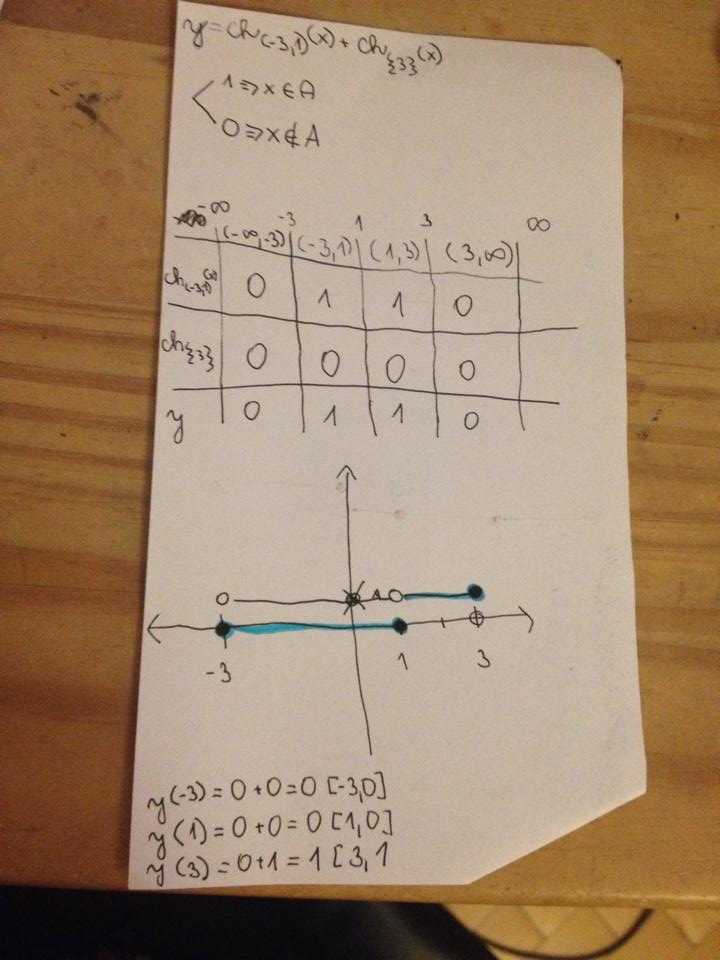 y = ch(-3,1)(x) + ch{3}(x)
1 ⇒ x ∈ A
0 ⇒ x ∉ A
-∞ -3 1 3 ∞
(-∞,-3) (-3,1) (1,3) (3,∞)
ch(-3,1)(x) 0 1 1 0
ch{3} 0 0 0 0
y 0 1 1 0
1
-3 1 3
y(-3) = 0 + 0 = 0 [-3,0]
y(1) = 0 + 0 = 0 [1,0]
y(3) = 0 + 1 = 1 [3,1